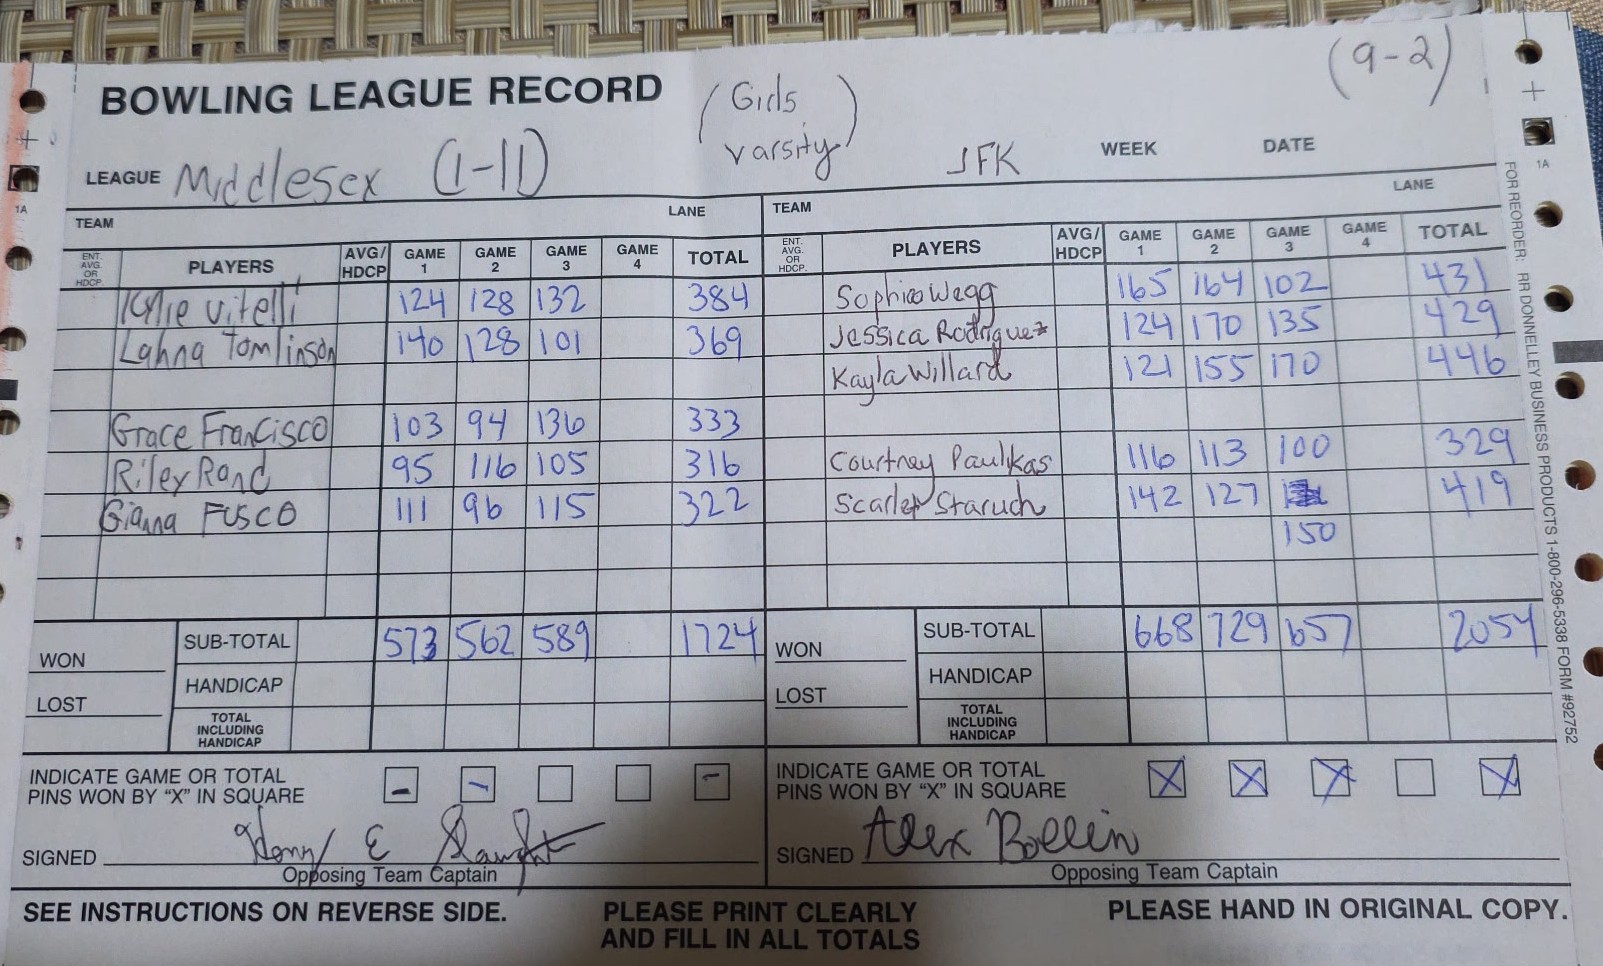 (9-2)
BOWLING LEAGUE RECORD (Girls varsity)
LEAGUE Middlesex (1-11) JFK WEEK DATE
TEAM LANE TEAM LANE
ENT. AVG. OR HDCP. PLAYERS AVG/HDCP GAME 1 GAME 2 GAME 3 GAME 4 TOTAL
Kylie Vitelli 124 128 132 384
Lahna Tomlinson 140 128 101 369
Grace Francisco 103 94 136 333
Riley Rand 95 116 105 316
Gianna Fusco 111 96 115 322
WON
LOST
SUB-TOTAL 573 562 589 1724
HANDICAP
TOTAL INCLUDING HANDICAP
INDICATE GAME OR TOTAL
PINS WON BY "X" IN SQUARE - - -
SIGNED
Opposing Team Captain
ENT. AVG. OR HDCP. PLAYERS AVG/HDCP GAME 1 GAME 2 GAME 3 GAME 4 TOTAL
Sophia Wegg 165 164 102 431
Jessica Rodriguez 124 170 135 429
Kayla Willard 121 155 170 446
Courtney Paulikas 116 113 100 329
Scarlet Staruch 142 127 419
150
WON
LOST
SUB-TOTAL 668 729 657 2054
HANDICAP
TOTAL INCLUDING HANDICAP
INDICATE GAME OR TOTAL
PINS WON BY "X" IN SQUARE X X X X
SIGNED Alex Bollin
Opposing Team Captain
SEE INSTRUCTIONS ON REVERSE SIDE.
PLEASE PRINT CLEARLY
AND FILL IN ALL TOTALS
PLEASE HAND IN ORIGINAL COPY.
FOR REORDER: RR DONNELLEY BUSINESS PRODUCTS 1-800-296-5338 FORM #92752
1A
1A